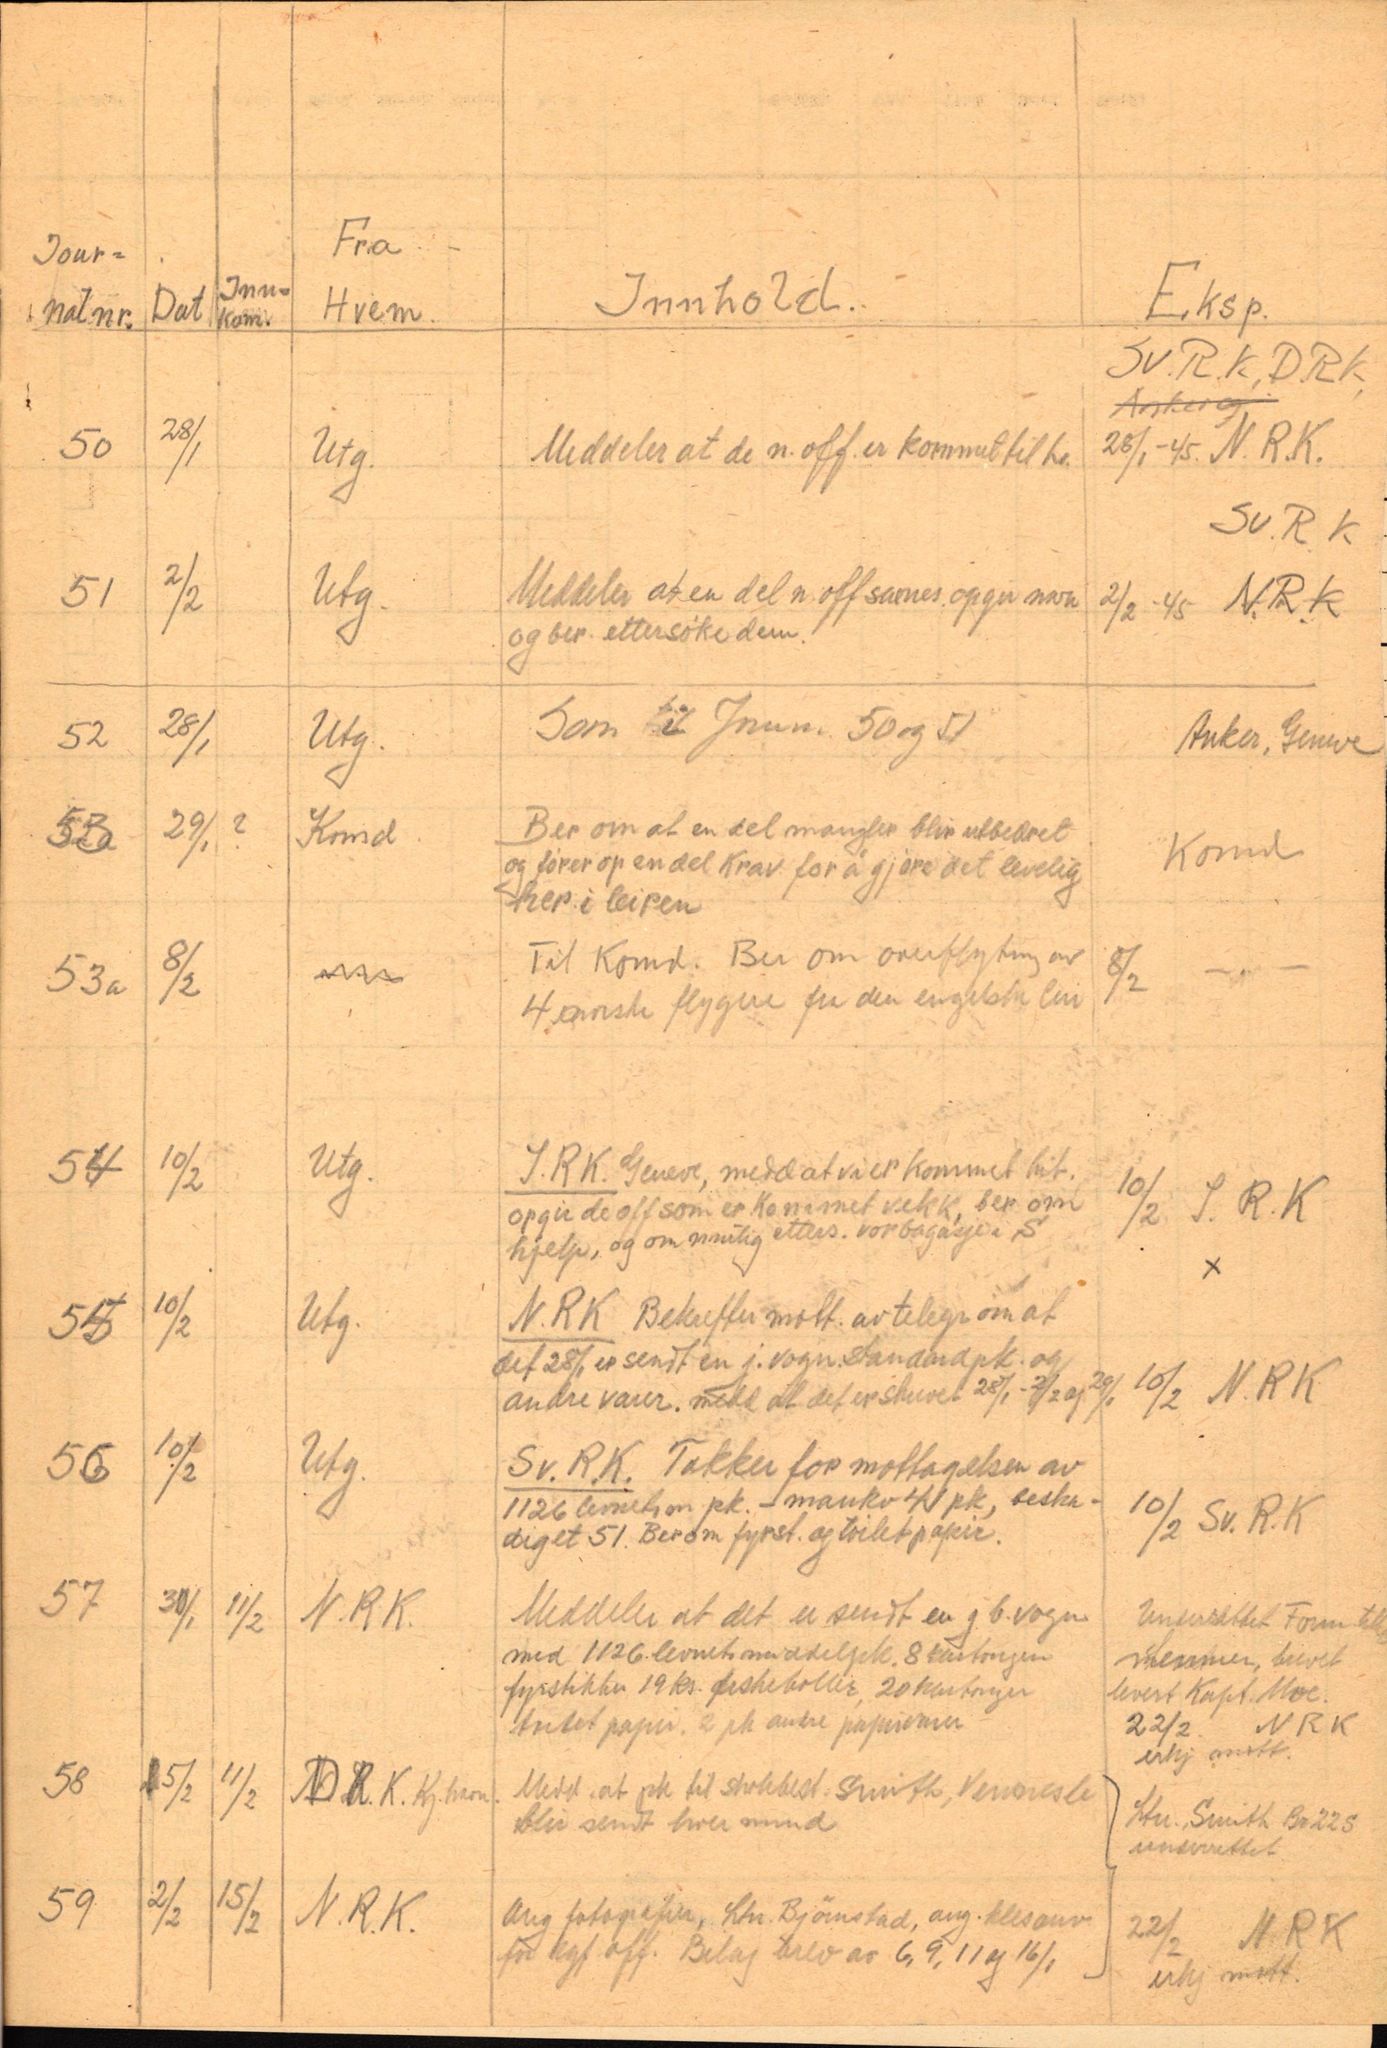 Jour-
nal nr. Dat Inn-kom. Fra Hvem. Innhold. Eksp.
Sv. R. K, D.R.K,
50 28/1 Utg. Meddeler at de n. off. er kommet til hr. 28/1-45. N. R. K.
Sv. R. K
51 2/2 Utg. Meddeler at en del n. off savnes. opgir navn 2/2-45 N. R. K
og ber. ettersöke dem.
52 28/1 Utg. Som til Jnum. 50 og 51 Anker, Geneve
53a 29/1 ? Komd Ber om at en del mangler blir utbedret Komd
og förer op en del Krav for å gjöre det levelig
her i leiren
53a 8/2 Til Komd. Ber om overflytning av 8/2 — " —
4 norske flygere fra den engelske leir
54 10/2 Utg. I. R K. Geneve, medd at vi er kommet hit.
opgir de off som er kommet vekk, ber om 10/2 I. R. K
hjelp, og om mulig etters. vor bagasje i S
x
55 10/2 Utg. N. R K Bekrefter mott. av telegr om at
det 28/1 er sendt en j. vogn. standardpk. og
andre varer. medd at det er skrevet 28/1 - 2/2 og 29/1 10/2 N. R K
56 10/2 Utg. Sv. R. K. Takker for mottagelsen av
1126 levnetsm pk. - manko 41 pk, beska-
diget 51. Ber om fyrst. og toiletpapir. 10/2 Sv. R. K
57 30/1 11/2 N. R. K. Meddeler at det er sendt en j b. vogn Underrettet Form till
med 1126 levnetsmiddelpk. 8 kartonger menner, brevet
fyrstikker 19 ks. fiskeboller, 20 kartonger levert Kapt. Moe.
toilet papir. 2 pk andre papirvarer 22/2. N R K
erkj mott.
58 5/2 11/2 D R. K. Kj. havn. Medd. at pk til skolebest. Smith, Vennesla
blir sendt hver mnd Ltn. Smith Br 22 S
underrettet
59 2/2 15/2 N. R. K. Ang fotografier, Ltn. Björnstad, ang. klesanv 22/2 N R K
for lgf off. Bilag brev av 6, 9, 11 og 16/1 erkj mott.